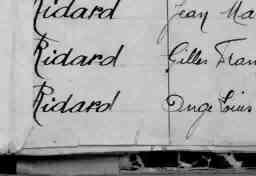 Ridard Jean Ma
Ridard Gilles Fran
Ridard Ange Louis